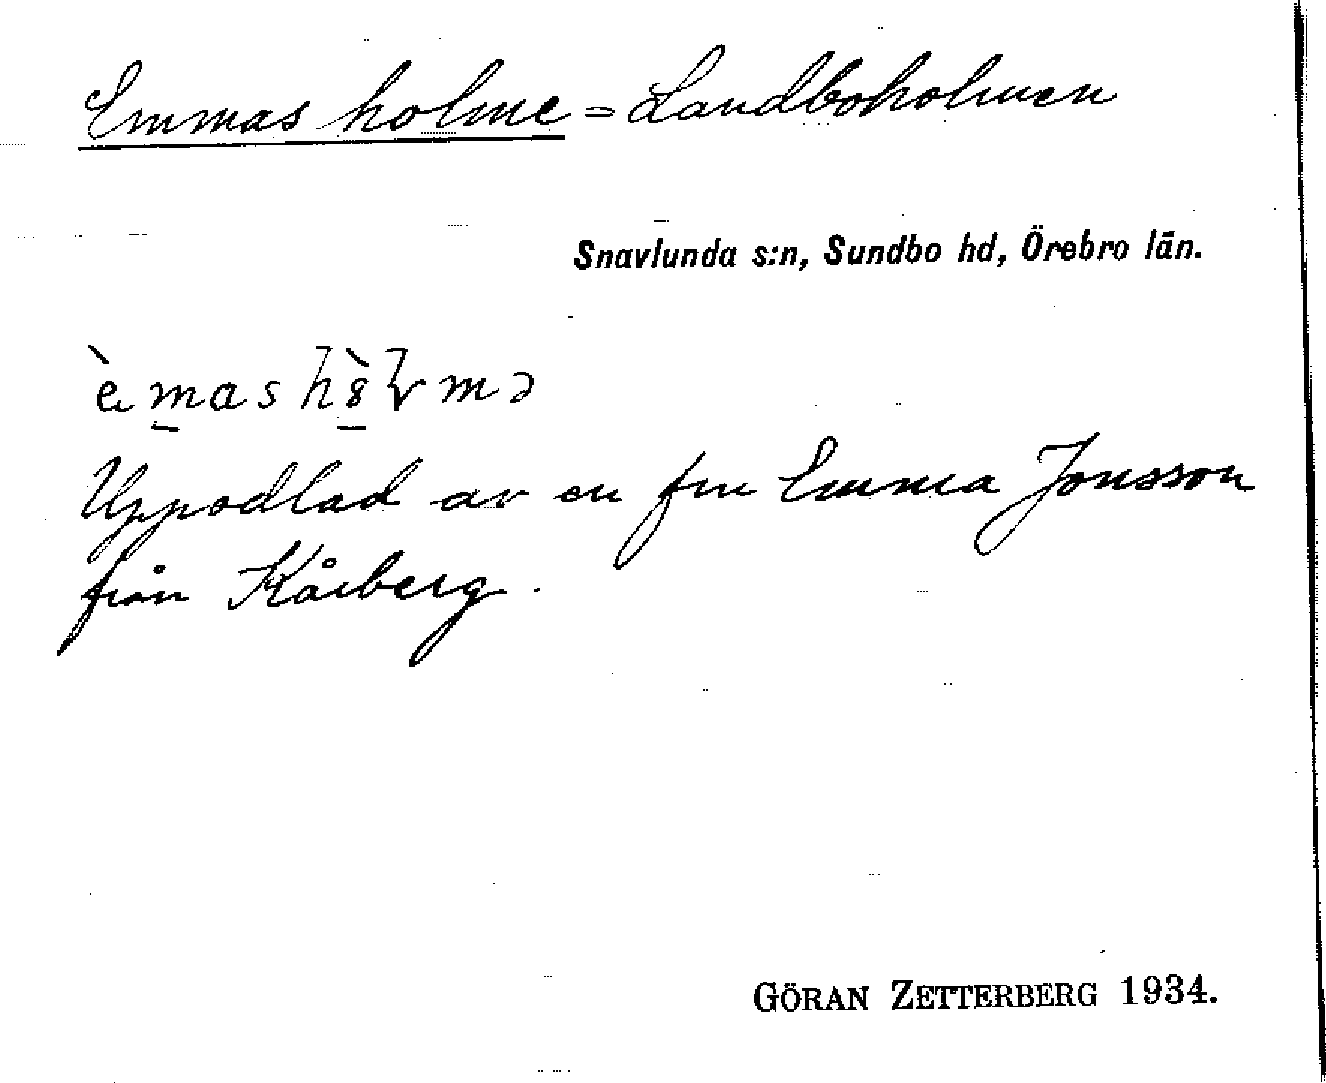 Emmas holme = Landboholmen
Snavlunda s:n, Sundbo hd, Örebro län.
Uppodlad av en fru Emma Jonsson
från Kårberg.
GÖRAN ZETTERBERG 1934.